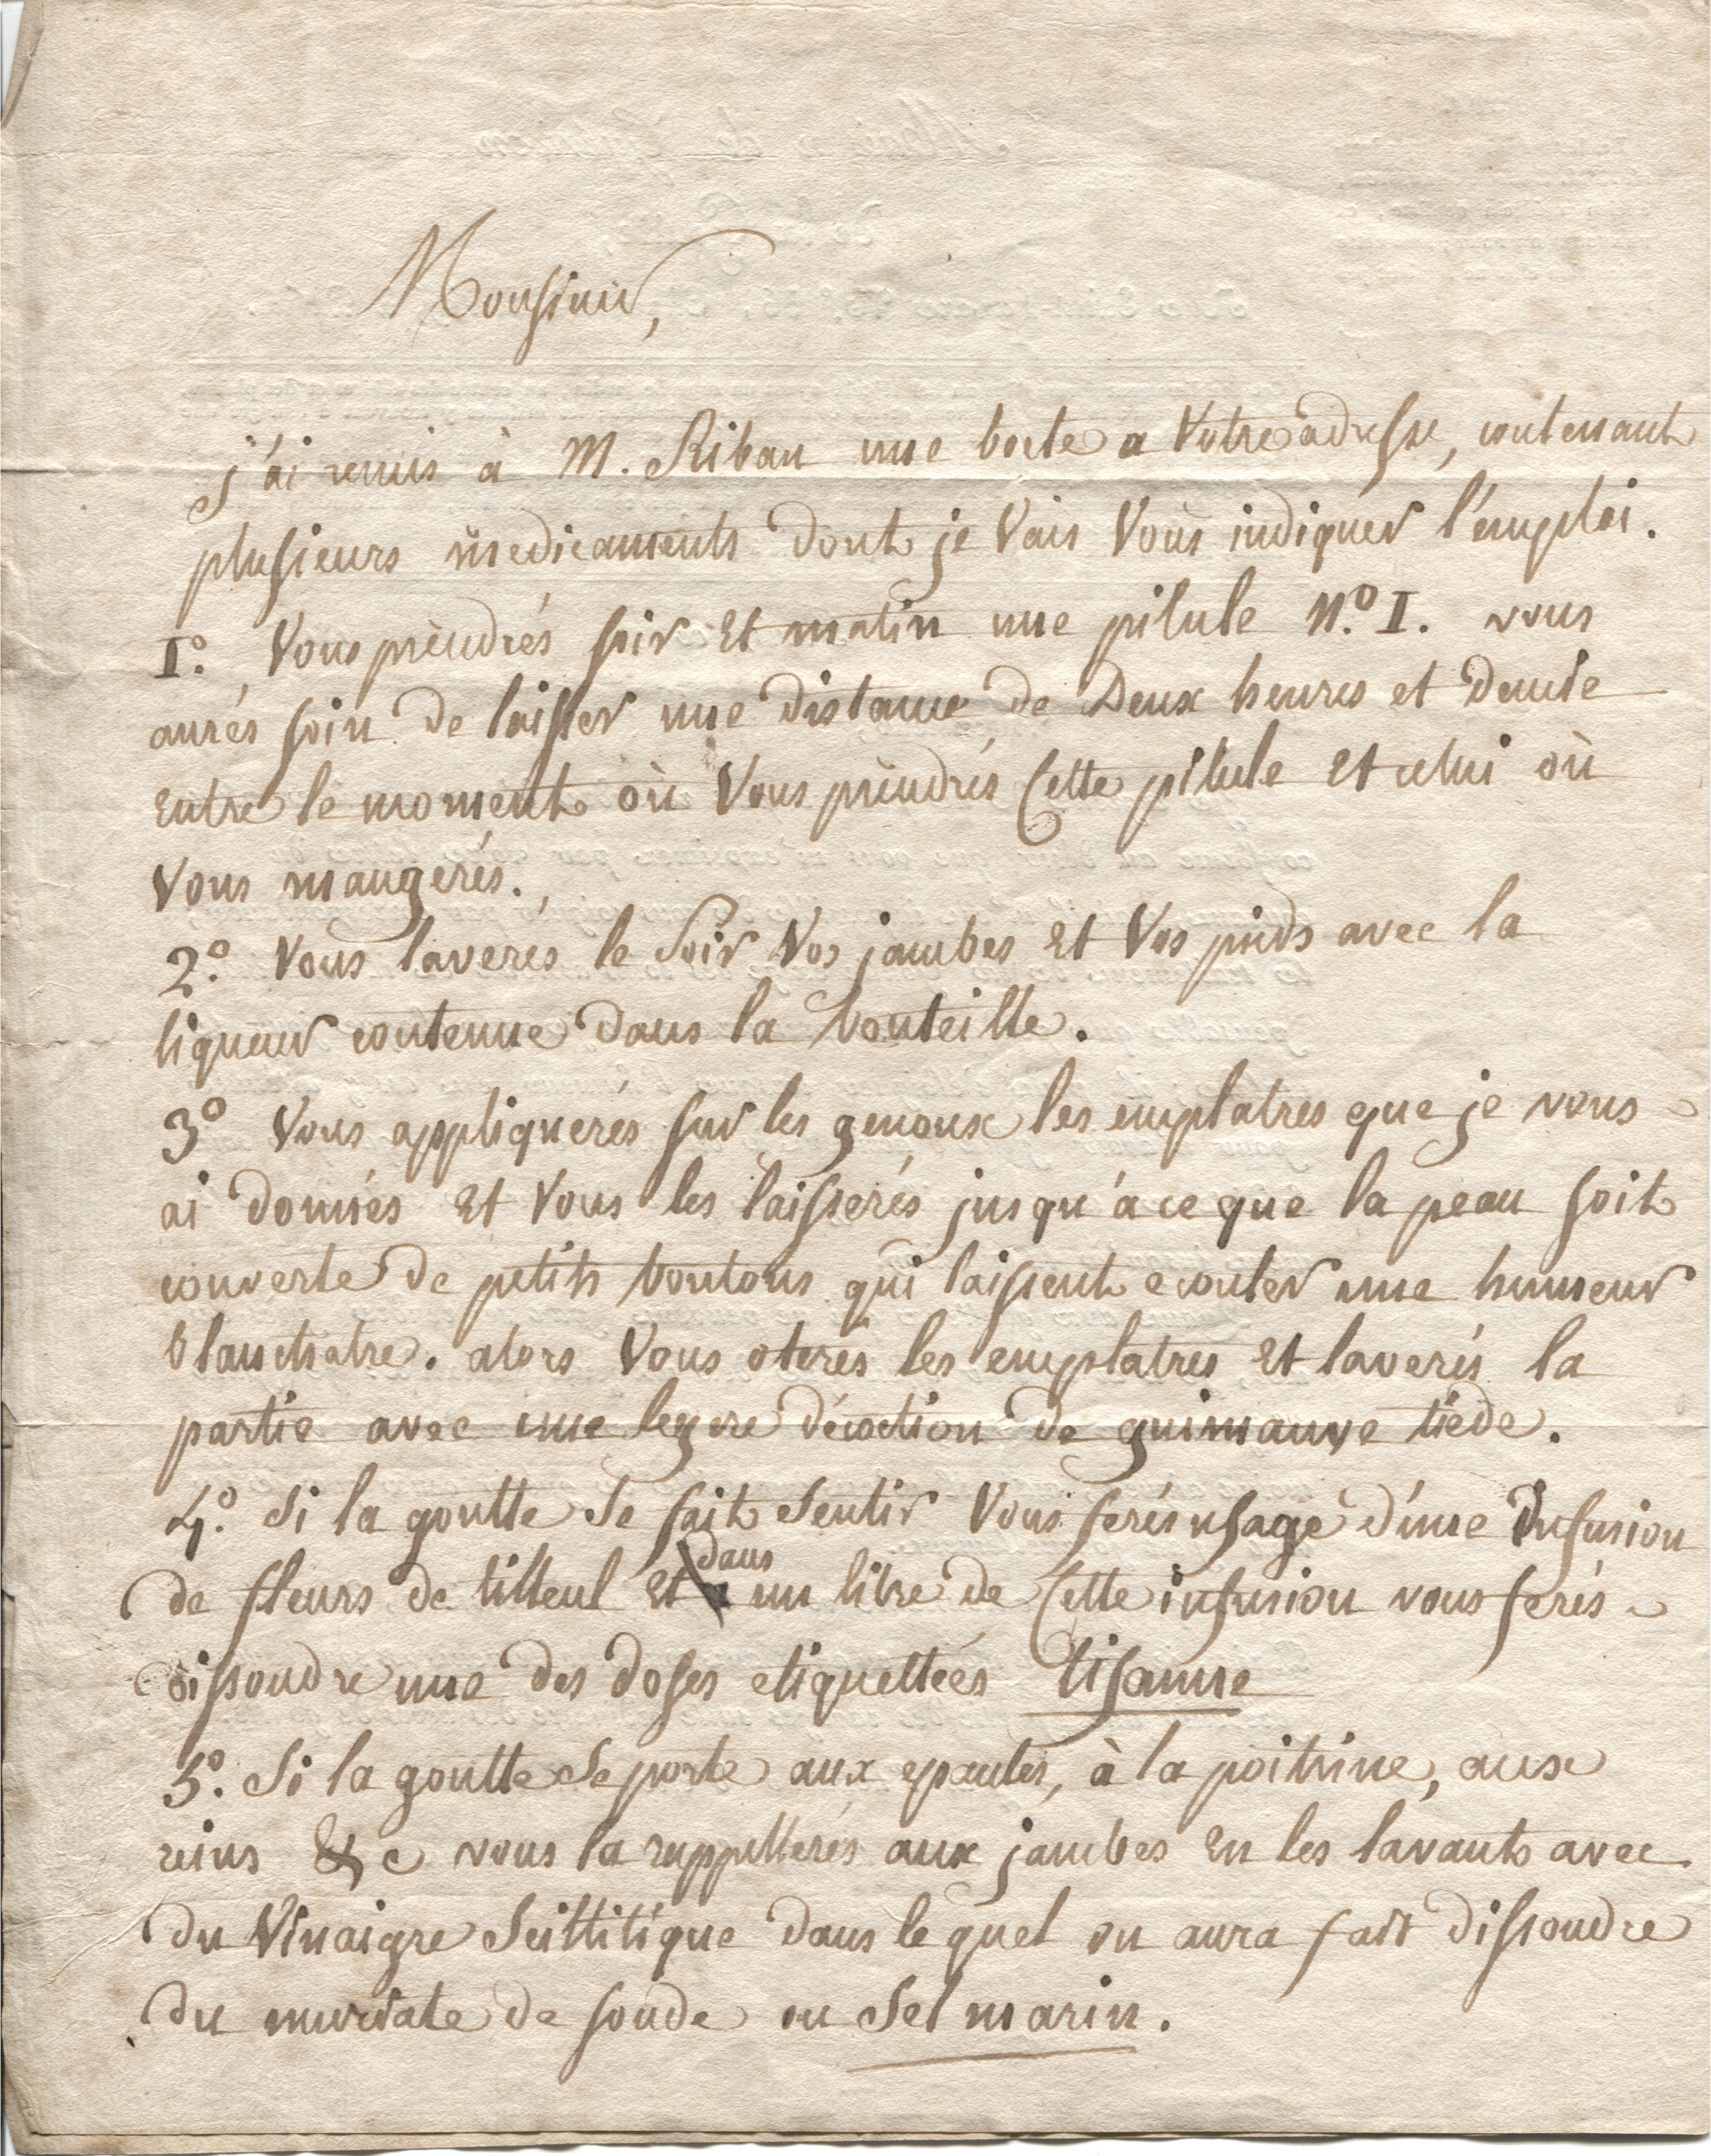 Monsieur,
j'ai remis à M. Riban une boete a votre adresse, contenant
plusieurs medicaments dont je vais vous indiquer l'emploi.
I.° Vous prèndrés soir et matin une pilule N.° I. vous
aurés soin de laisser une distance de Deux heures et demie
entre le moment où vous prèndrés cette pilule et celui où
vous mangerés.
2.° Vous laverés le soir vos jambes et vos pieds avec la
liqueur contenue dans la bouteille.
3° Vous appliquerés sur les genoux les emplatres que je vous
ai donnés et vous les laisserés jusqu'à ce que la peau soit
couverte de petits boutons qui laissent ecouler une humeur
blanchatre. alors vous oterés les emplatres et laverés la
partie avec une legere décoction de guimauve tiède.
4.° Si la goutte se fait sentir vous ferés usage d'une Infusion
de fleurs de tilleul et dans un litre de cette infusion vous ferés
dissoudre une des doses etiquettées tisanne
5.° Si la goutte se porte aux epaules, à la poitrine, aux
reins &c vous la rappellerés aux jambes en les lavants avec
du vinaigre scillitique dans lequel on aura fait dissoudre
du muriate de soude ou sel marin.